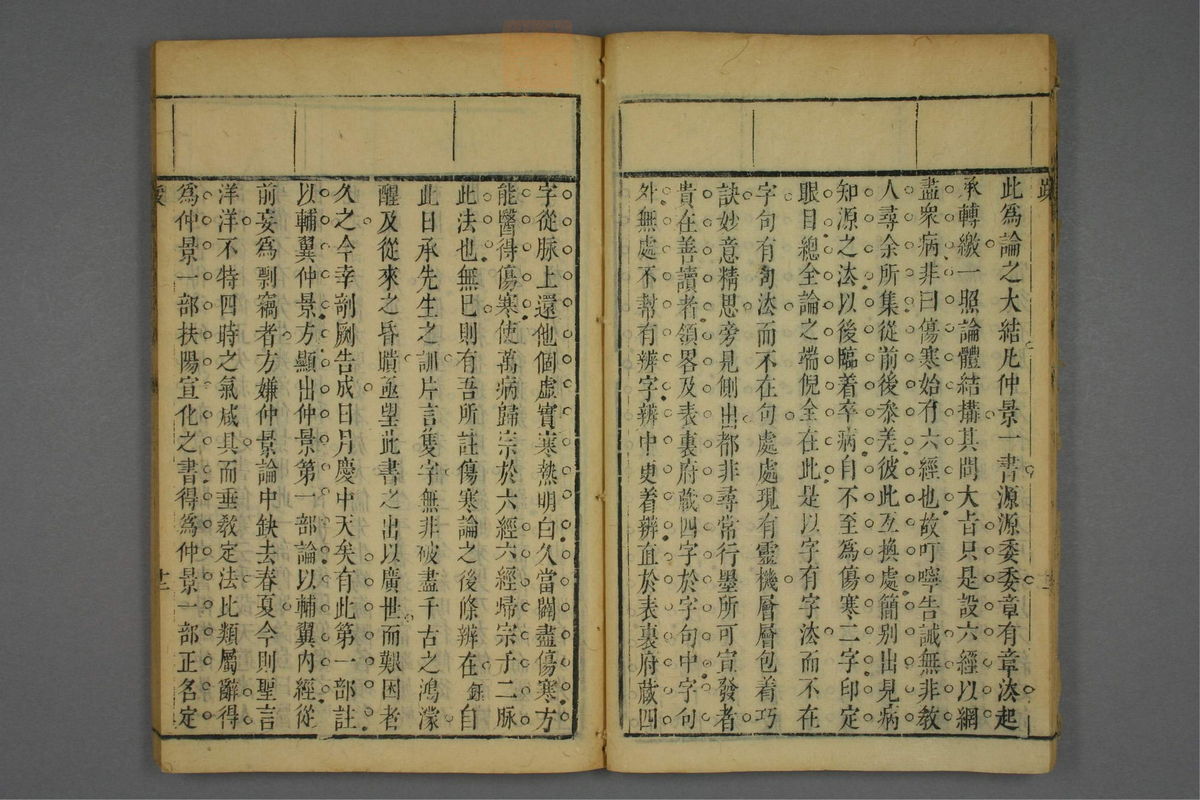 此爲論之大結凡仲景一書源源委委章有章法起
承轉繳一照論體結搆其間大㫖只是設六經以網
盡衆病非曰傷寒始有六經也故叮嚀告誡無非教
人尋余所集從前後叅差彼此互換處簡别出見病
知源之法以後臨着卒病自不至爲傷寒二字印定
眼目總全論之端倪全在此是以字有字法而不在
字句有句法而不在句處處現有靈機層層包着巧
訣妙意精思旁見側出都非尋常行墨所可宣發者
貴在善讀者領畧及表裏府藏四字於字句中字句
外無處不幇有辨字辨中更着辨直於表裏府藏四
字從脉上還他個虚實寒熱明白久當闢盡傷寒方
能醫得傷寒使萬病歸宗於六經六經歸宗于二脉
此法也無已則有吾所註傷寒論之後條辨在余自
此日承先生之訓片言隻字無非破盡千古之鴻濛
醒及從來之昏瞶亟望此書之出以廣世而艱困者
久之今幸剞劂告成日月慶中天矣有此第一部註
以輔翼仲景方顯出仲景第一部論以輔翼内經從
前妄爲剽竊者方嫌仲景論中缺去春夏今則聖言
洋洋不特四時之氣咸具而垂教定法比類屬辭得
爲仲景一部扶陽宣化之書得爲仲景一部正名定